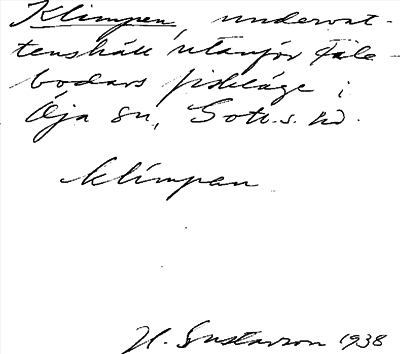 Klimpen, undervat-
tenshäll utanför Fäle-
bodars fiskläge i
Öja sn, Gotl.s. hd.
klimpan
H. Gustavson 1938